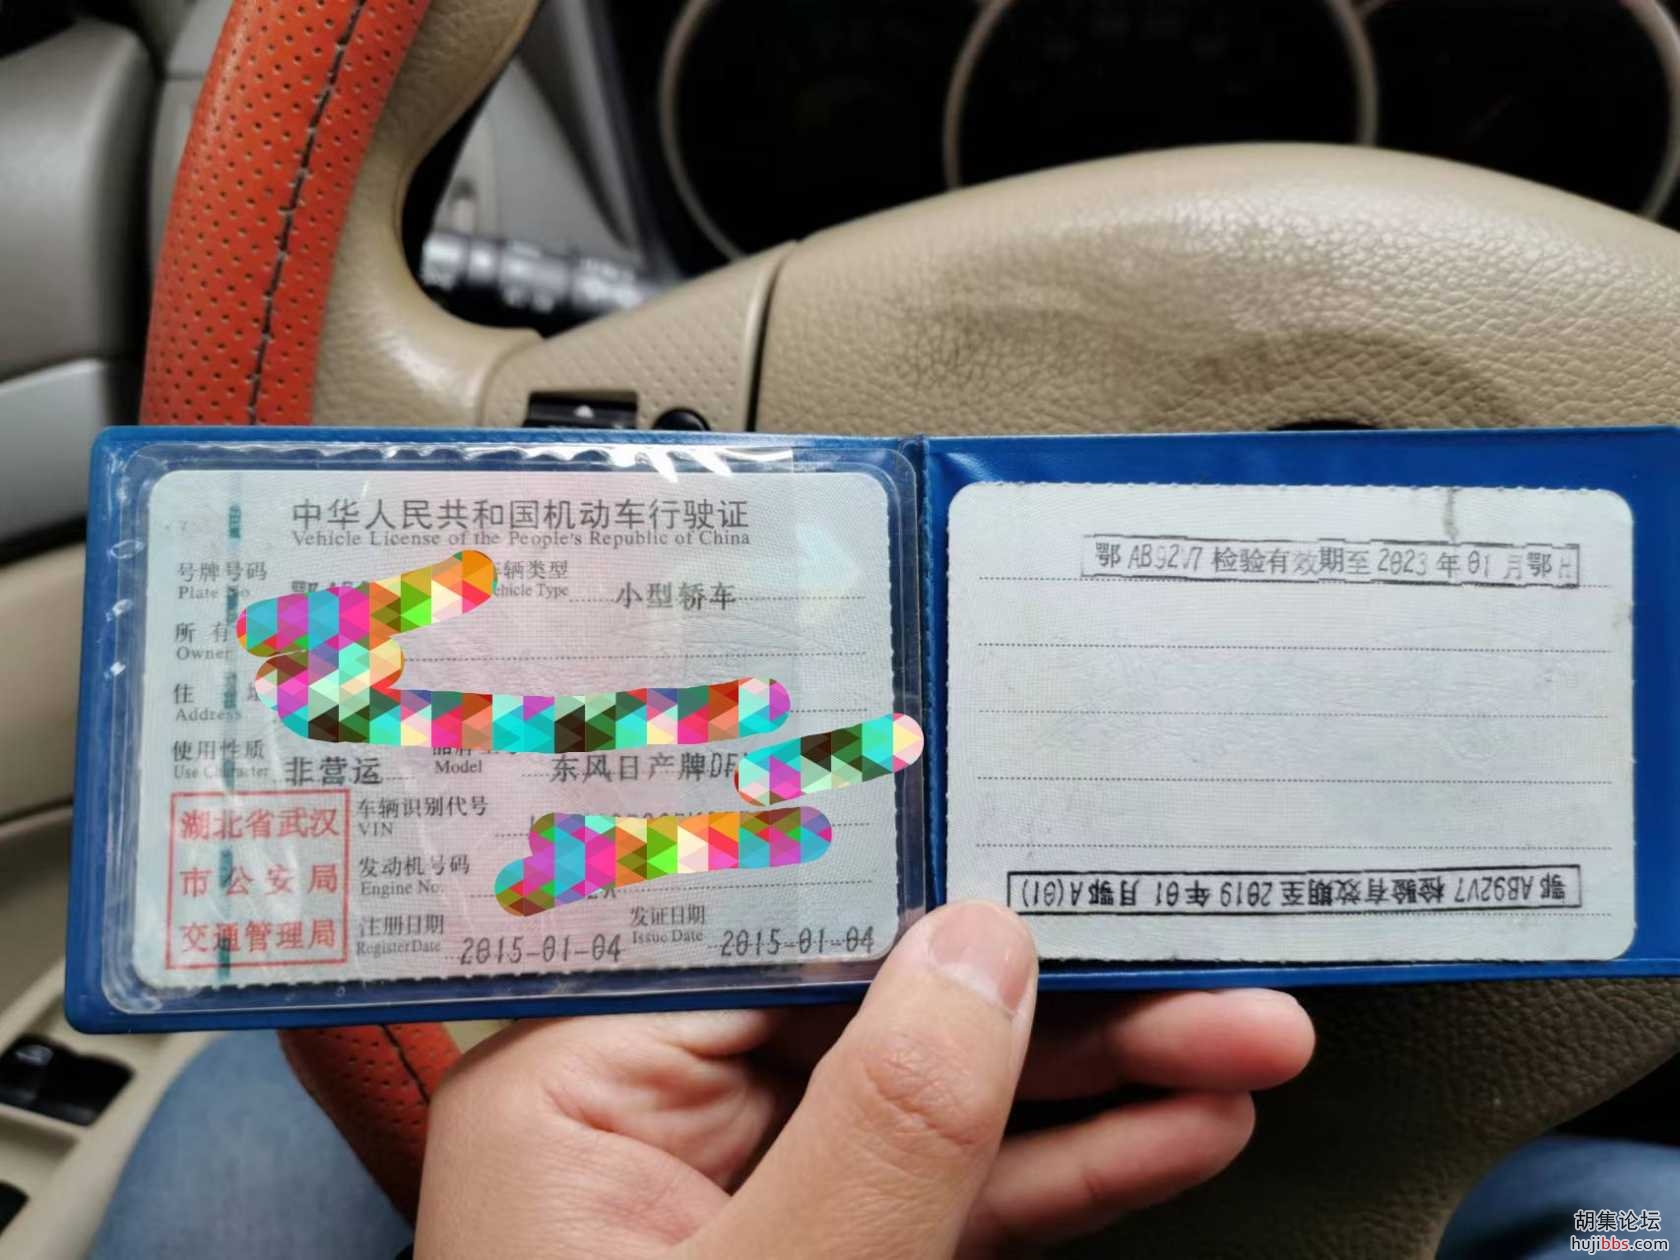 中华人民共和国机动车行驶证
Vehicle License of the People's Republic of China
号牌号码
Plate No.
车辆类型
Vehicle Type
小型轿车
所有
Owner
住
Address
使用性质
Use Character
非营运
Model
东风日产牌DF
湖北省武汉
市公安局
交通管理局
车辆识别代号
VIN
发动机号码
Engine No.
注册日期
Register Date
2015-01-04
发证日期
Issue Date
2015-01-04
鄂AB92V7 检验有效期至2023年01月鄂H
鄂AB92V7 检验有效期至2019年01月鄂A(01)
胡集论坛
hujibbs.com